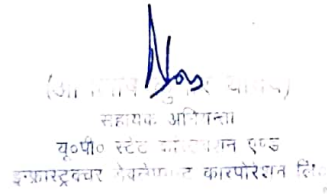 सहायक अभियन्ता
यू०पी० स्टेट कन्सट्रक्शन एण्ड
इन्फ्रास्ट्रक्चर डेवलेपमेन्ट कारपोरेशन लि०